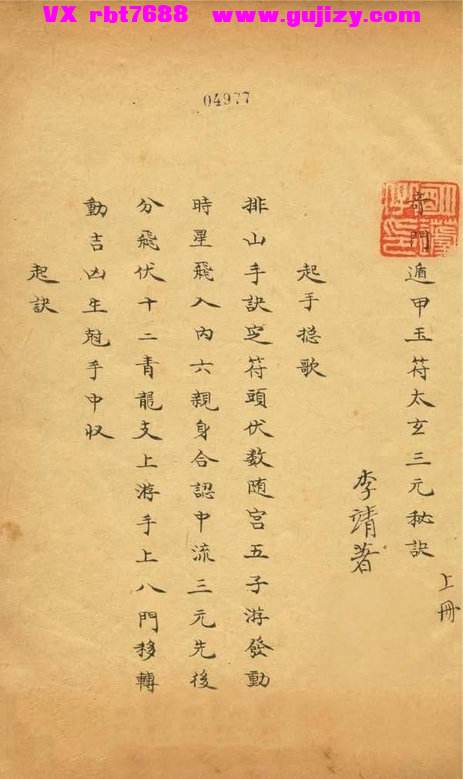 VX rbt7688 www.gujizy.com
04977
奇門遁甲玉符太玄三元秘訣
上冊
李靖著
起手捴歌
排山手訣定符頭伏数随宫五子游發動
時星飛入内六親身合認中流三元先後
分飛伏十二青龍支上游手上八門移轉
動吉凶生尅手中収
起訣